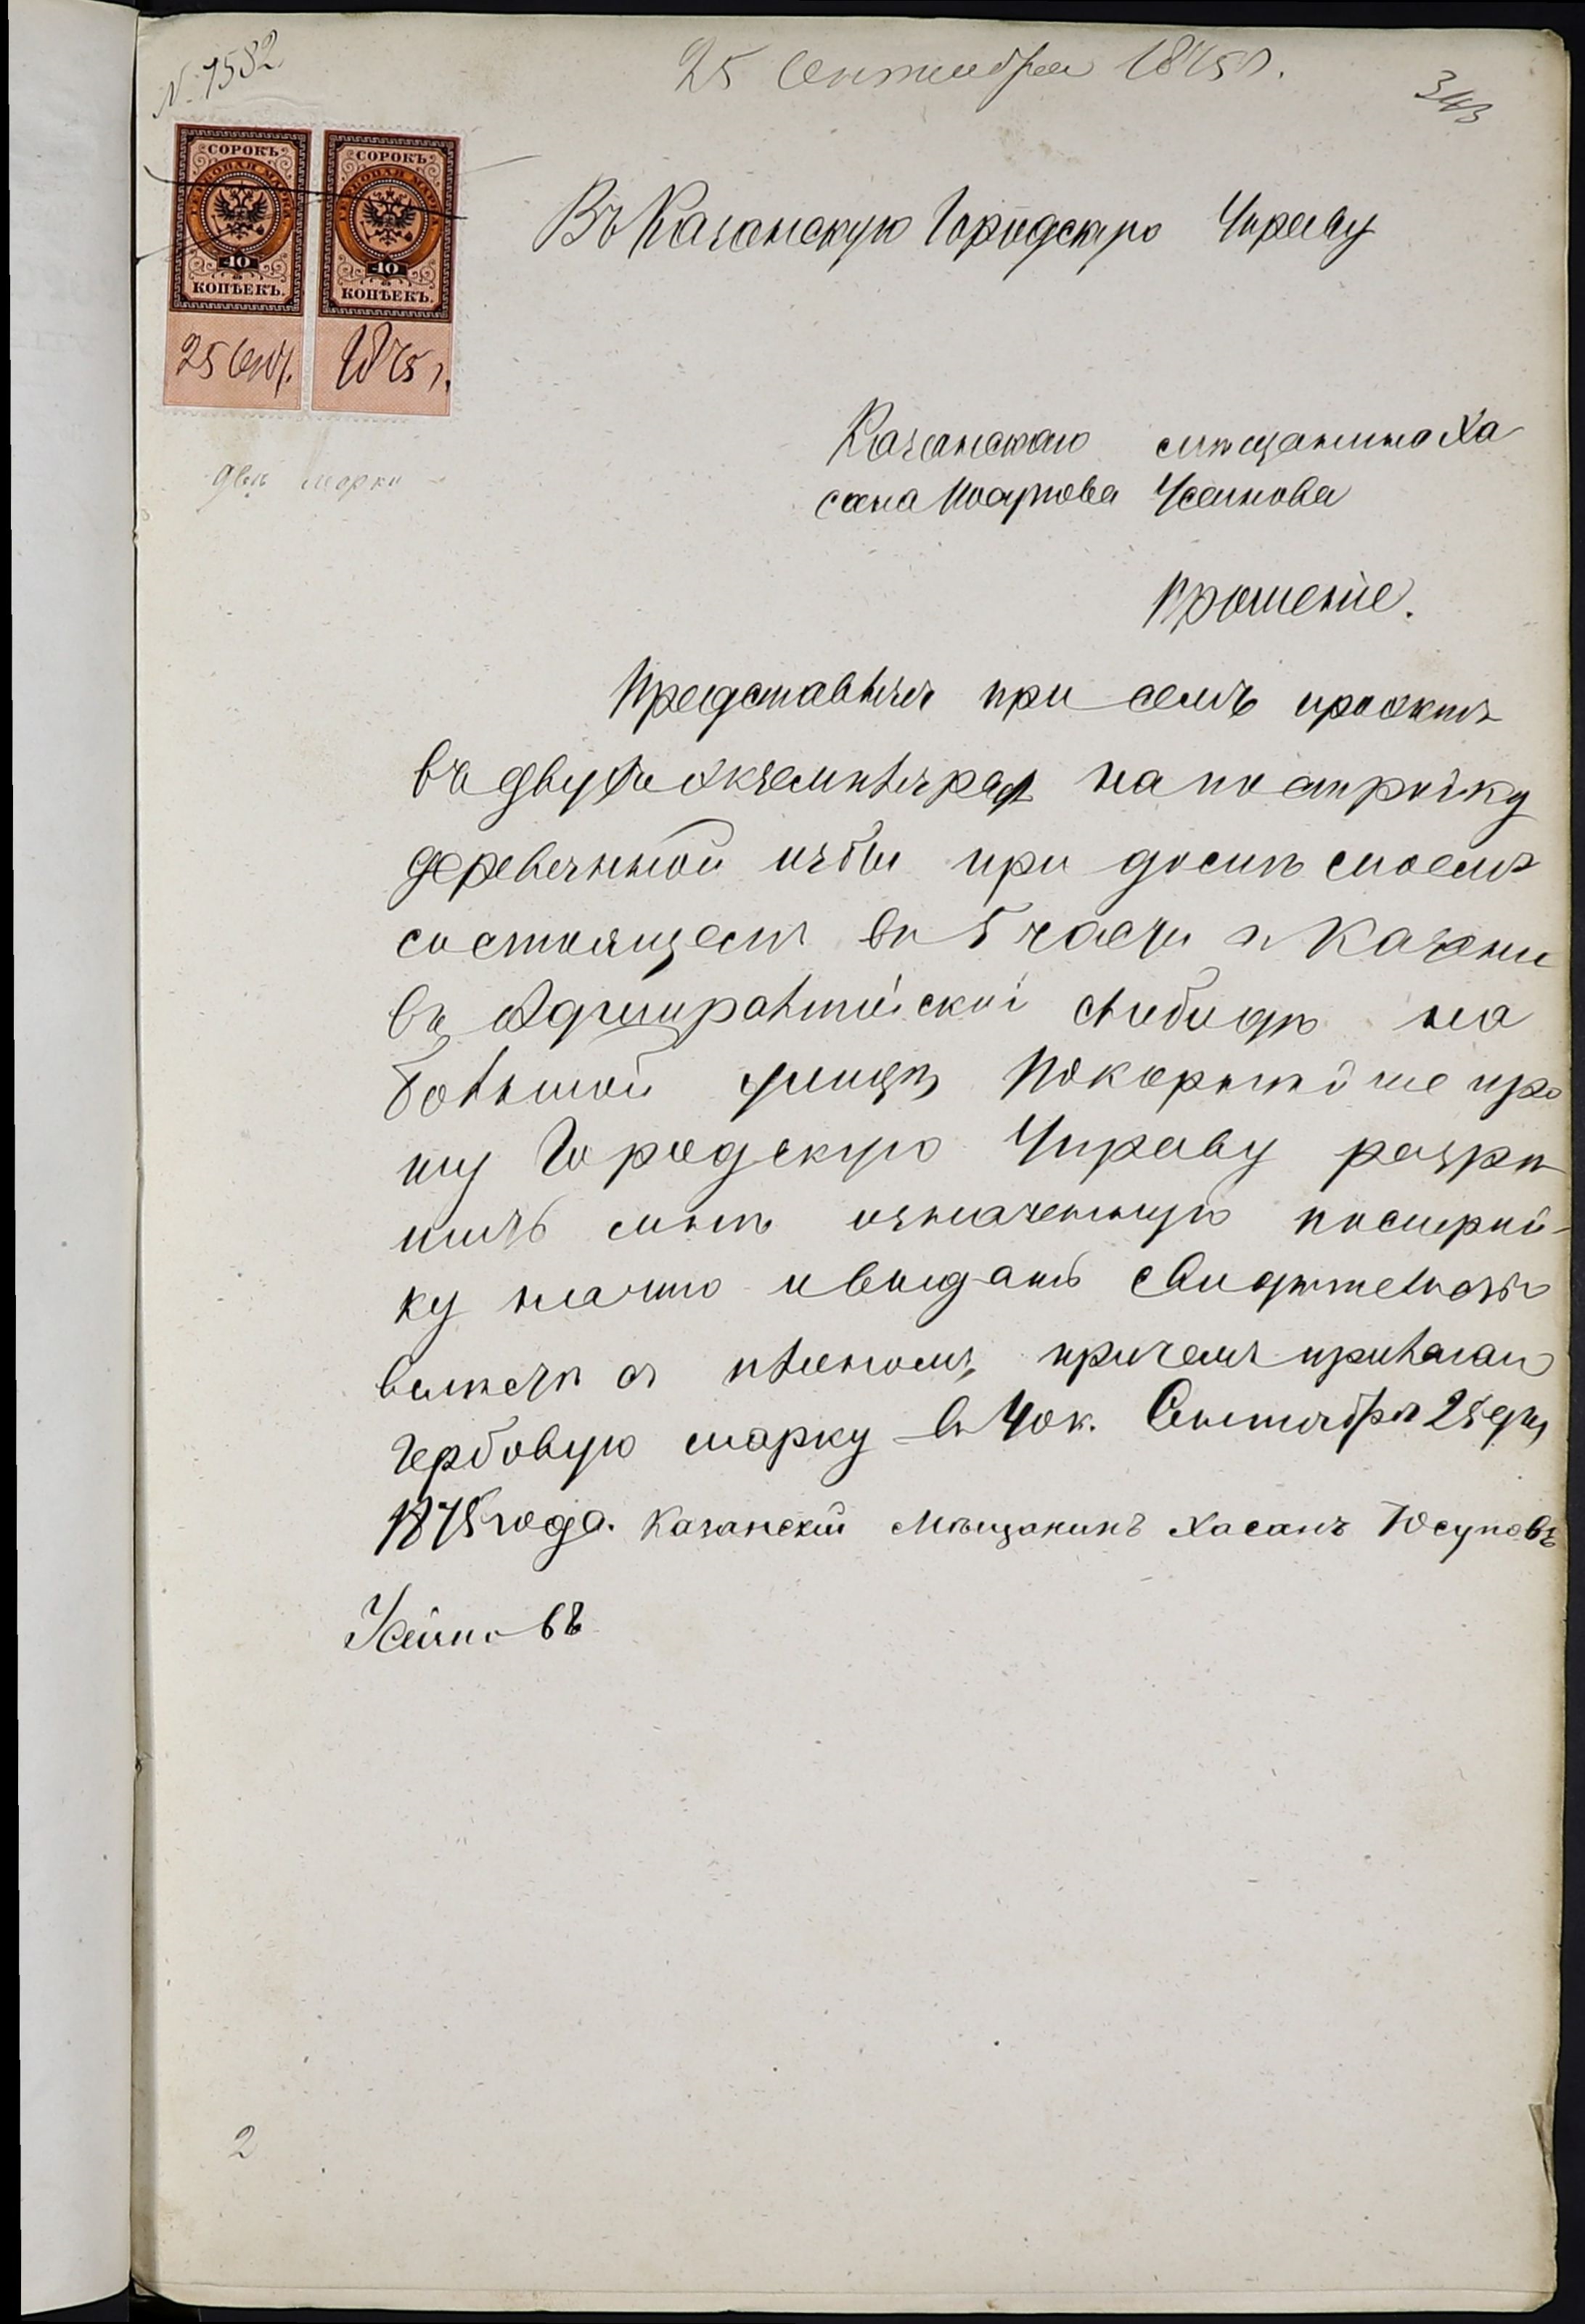 N. 7582
25 Сентября 1875 г.
343
СОРОКЪ
ГЕРБОВАЯ МАРКА
40
КОПѢЕКЪ.
СОРОКЪ
ГЕРБОВАЯ МАРКА
40
КОПѢЕКЪ.
25 Сент. 1875 г.
двѣ марки
Въ Казанскую Городскую Управу
Казанскаго мѣщанина Ха
сана Юсупова Усеинова
Прошеніе.
Представляя при семъ проэктъ
въ двухъ экземплярах на постройку
деревянной избы при домѣ моемъ
состоящемъ въ 5 части г. Казани
въ Адмиралтейской слободѣ на
большой улицѣ Покорнѣйше про
шу Городскую Управу разрѣ
шить мнѣ означенную построй-
ку начто и выдать свидѣтельство
вмѣстѣ съ планомъ, причемъ прилагаю
гербовую марку въ 40 к. Сентября 25 дня
1875 года. Казанскій Мѣщанинъ Хасанъ Юсуповъ
Усеиновъ
2